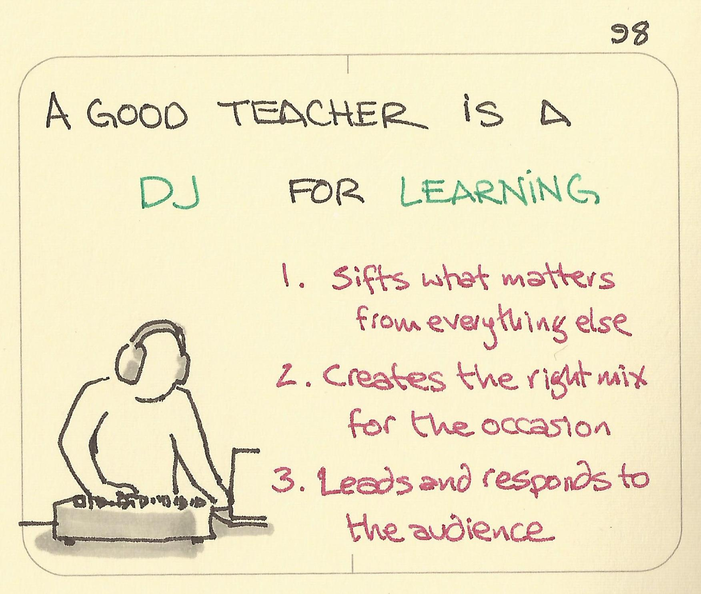 98
A GOOD TEACHER IS A
DJ FOR LEARNING
1. Sifts what matters
from everything else
2. Creates the right mix
for the occasion
3. Leads and responds to
the audience